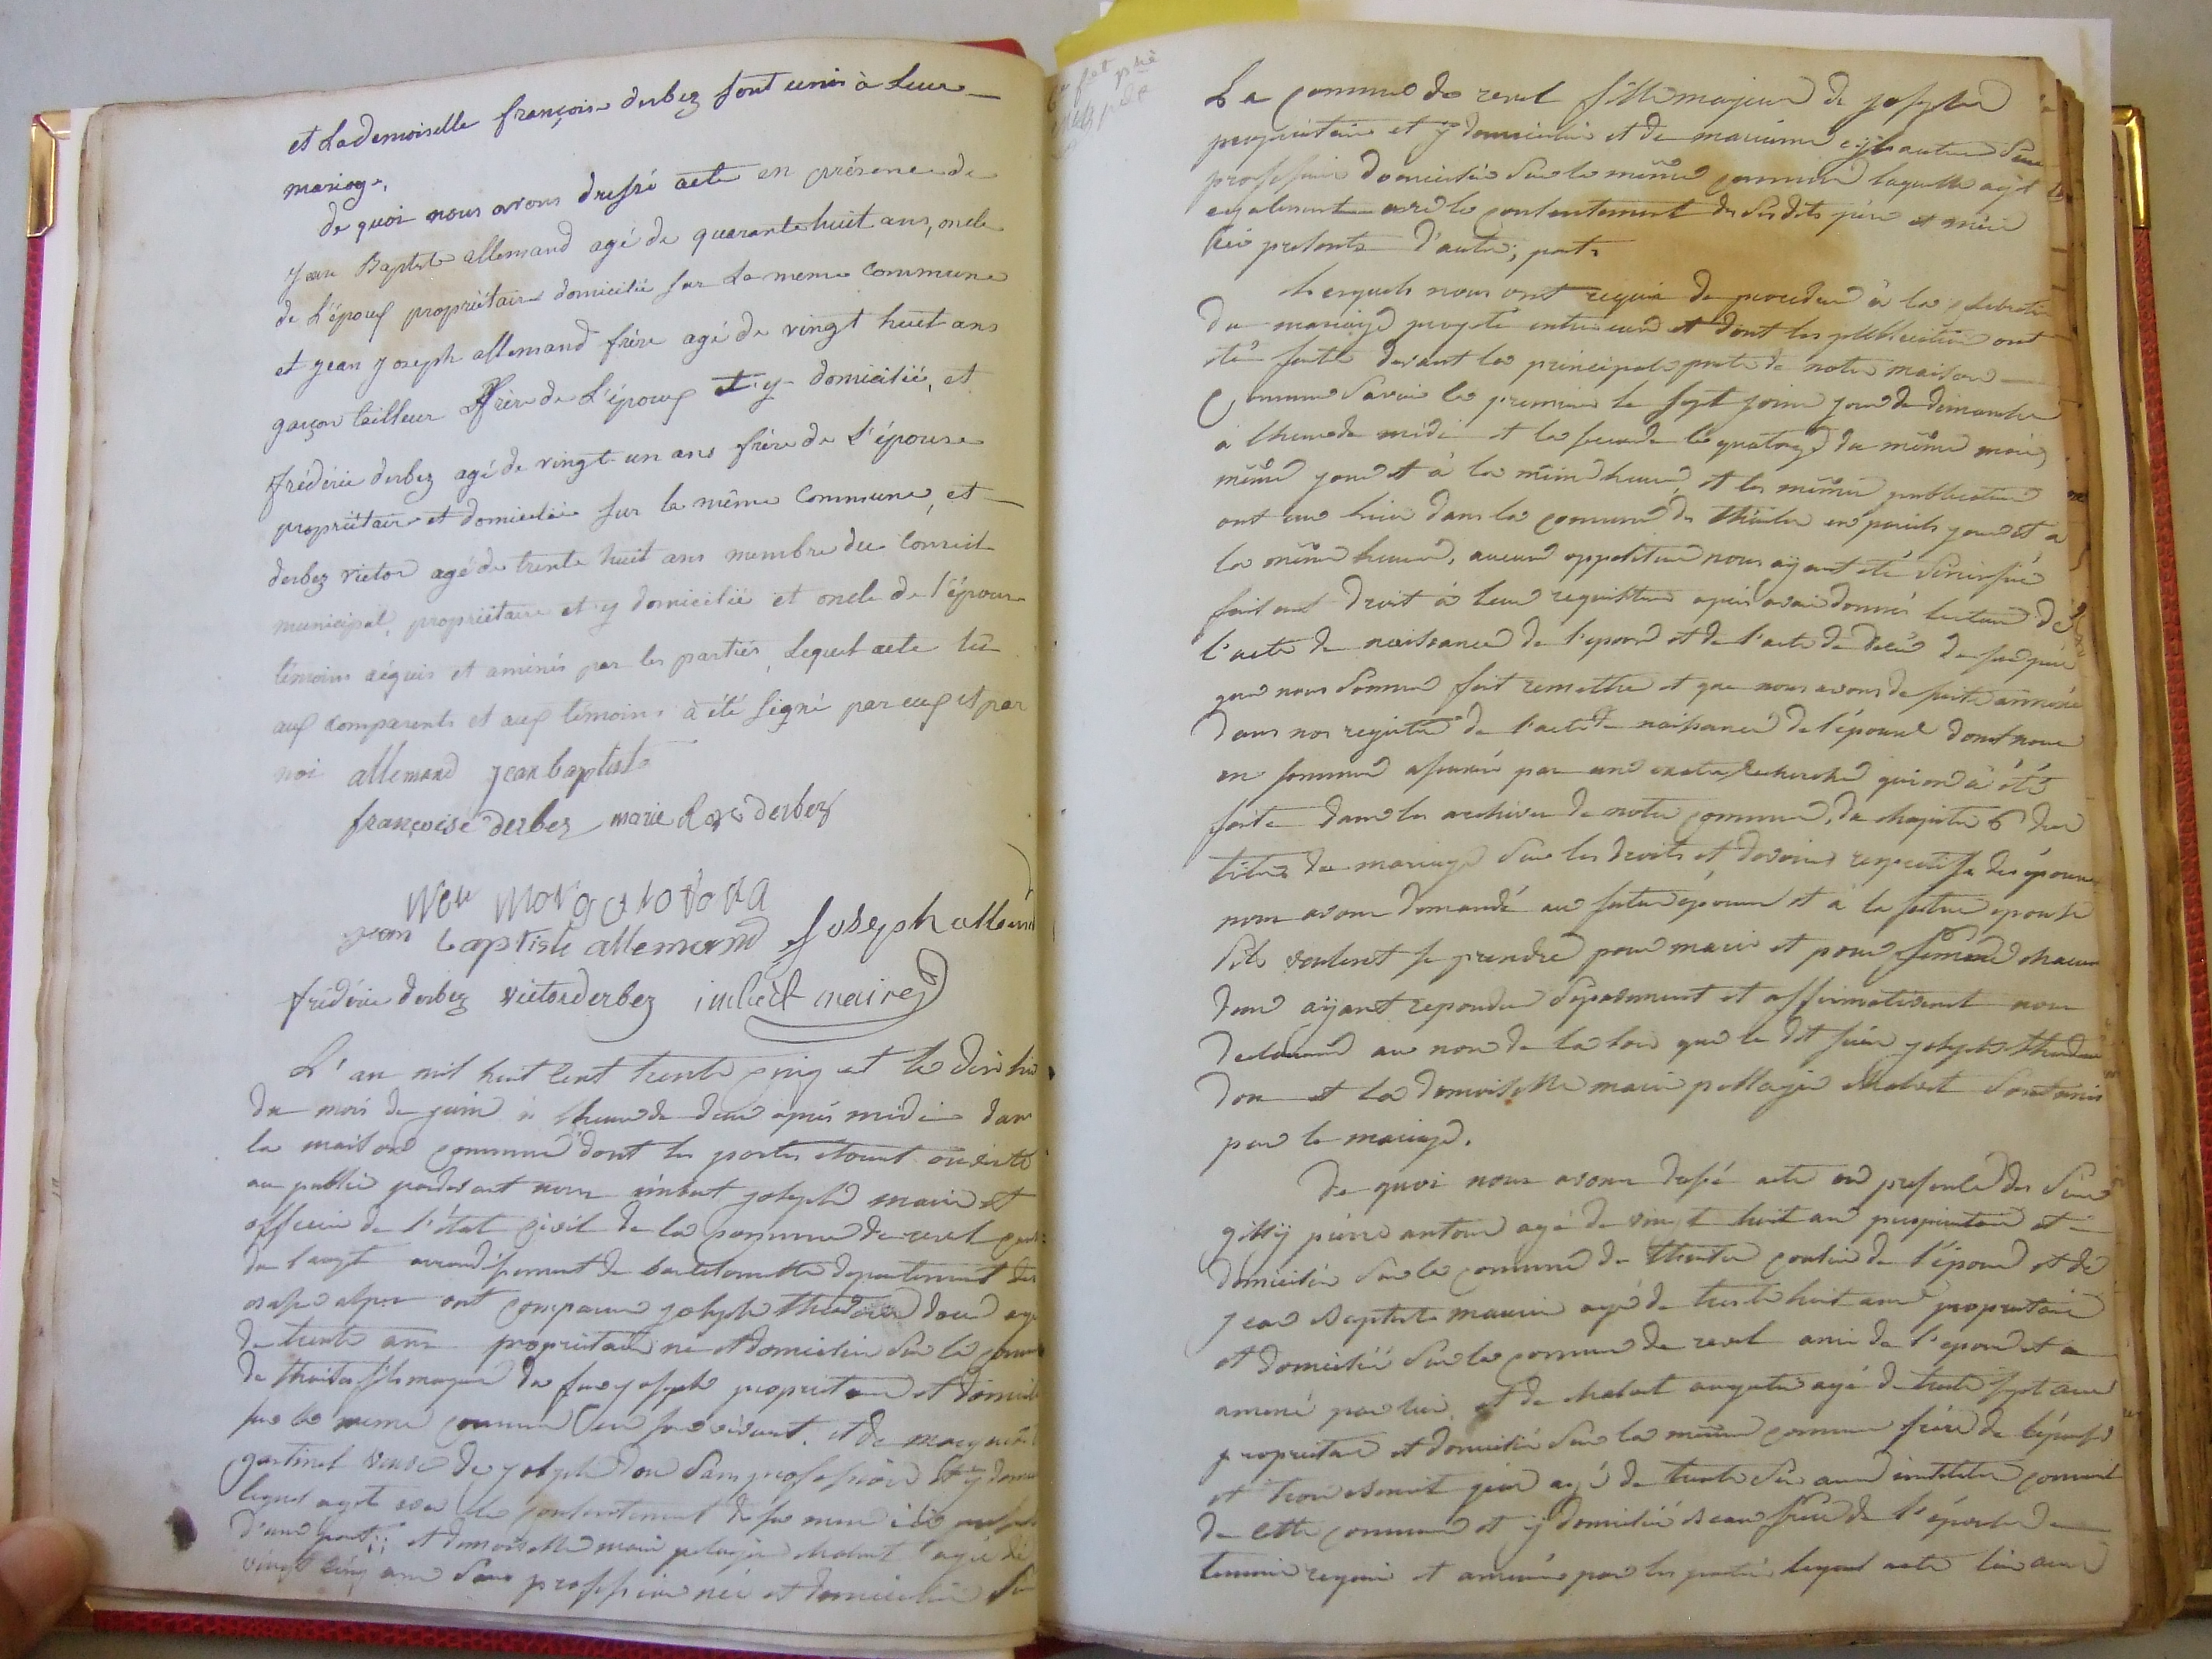 et La demoiselle françoise derbez sont unis à Leur
mariage.
de quoi nous avons dressé acte en présence de
jean Baptiste allemand agé de quarante huit ans, oncle
de L'époux propriétaire domicilié sur La meme Commune
et jean joseph allemand frère agé de vingt huit ans
garçon tailleur frère de L'époux et y domicilié, et
frédéric derbez agé de vingt un ans frère de L'épouse
propriétaire et domicilié sur la même Commune, et
derbez victor agé de trente huit ans membre du Conseil
municipal, propriétaire et y domicilié et oncle de l'épouse
témoins réquis et aménés par les parties, Lequel acte lu
aux comparents et aux témoins à été signé par eux et par
moi allemand jean baptiste
françoise derbez marie derbez
jean baptiste allemand joseph allemand
frédéric derbez victor derbez imbert maire
L'an mil huit cent trente cinq et le dix huit
du mois de juin à l'heure de deux après midi dans
la maison commune dont les portes étant ouverte
au public pardevant nous imbert joseph maire et
officier de l'état civil de la commune de revel
du lauzet arrondissement de barcelonnette departement des
basses alpes ont comparu joseph don agé
de trente ans propriétaire né et domicilié sur la commune
de thoules fils majeur de feu joseph proprietaire et domicilié
sur la meme commune et de
gastinel veuve de joseph don sans profession et y
lequel agit avec le consentement de sa mere ici presente
d'une part; et demoiselle marie pelagie chabret agée de
vingt cinq ans sans profession née et domiciliée sur
La Commune de revel fille majeure de joseph
propriétaire et y domicilié et de sans
profession domiciliée sur la même commune laquelle agit
egalement avec le consentement de ses dits père et mère
ici presents d'autre; part
Lesquels nous ont requis de proceder à la
du mariage projeté entre eux et dont les publications ont
été faite devant la principale porte de notre maison
Commune savoir la premiere le sept juin jour de dimanche
à l'heure de midi et la seconde le quatorze du même mois
même jour et à la même heure, et les même publications
ont eu lieu dans la commune de en pareils jour et a
la même heure, aucune opposition nous ayant été
faisant droit à leur requisition après avoir donné lecture de
l'acte de naissance de l'époux et de l'acte de décès de son père
que nous sommes fait remettre et que nous avons de suite annexé
dans nos registre de l'acte de naissance de l'épouse dont nous
en sommes assurés par une exacte recherche qui en à été
faite dans les archives de notre commune, du chapitre 6 du
titre du mariage sur les droits et devoirs respectifs des époux
nous avons demandé au futur époux et à la future epouse
s'ils veulent se prendre pour mari et pour femme chacun
deux ayant repondu séparement et affirmativement nous
declarons au nom de la loi que le dit sieur joseph
don et la demoiselle marie pellagie chabret sont unis
par le mariage.
De quoi nous avons dressé acte en presence des sieurs
pierre antoine agé de vingt huit ans proprietaire et
domicilié sur la commune de cousin de l'époux et de
jean Baptiste maurin agé de trente huit ans propriétaire
et domicilié sur la commune de revel ami de l'époux et
amené par lui et de chabret auguste agé de trente sept ans
proprietaire et domicilié sur la même commune frère de l'épouse
et agé de trente six ans instituteur communal
de cette commune et y domicilié beau frère de l'épouse
temoins requis et amenés par les parties lequel acte lu aux